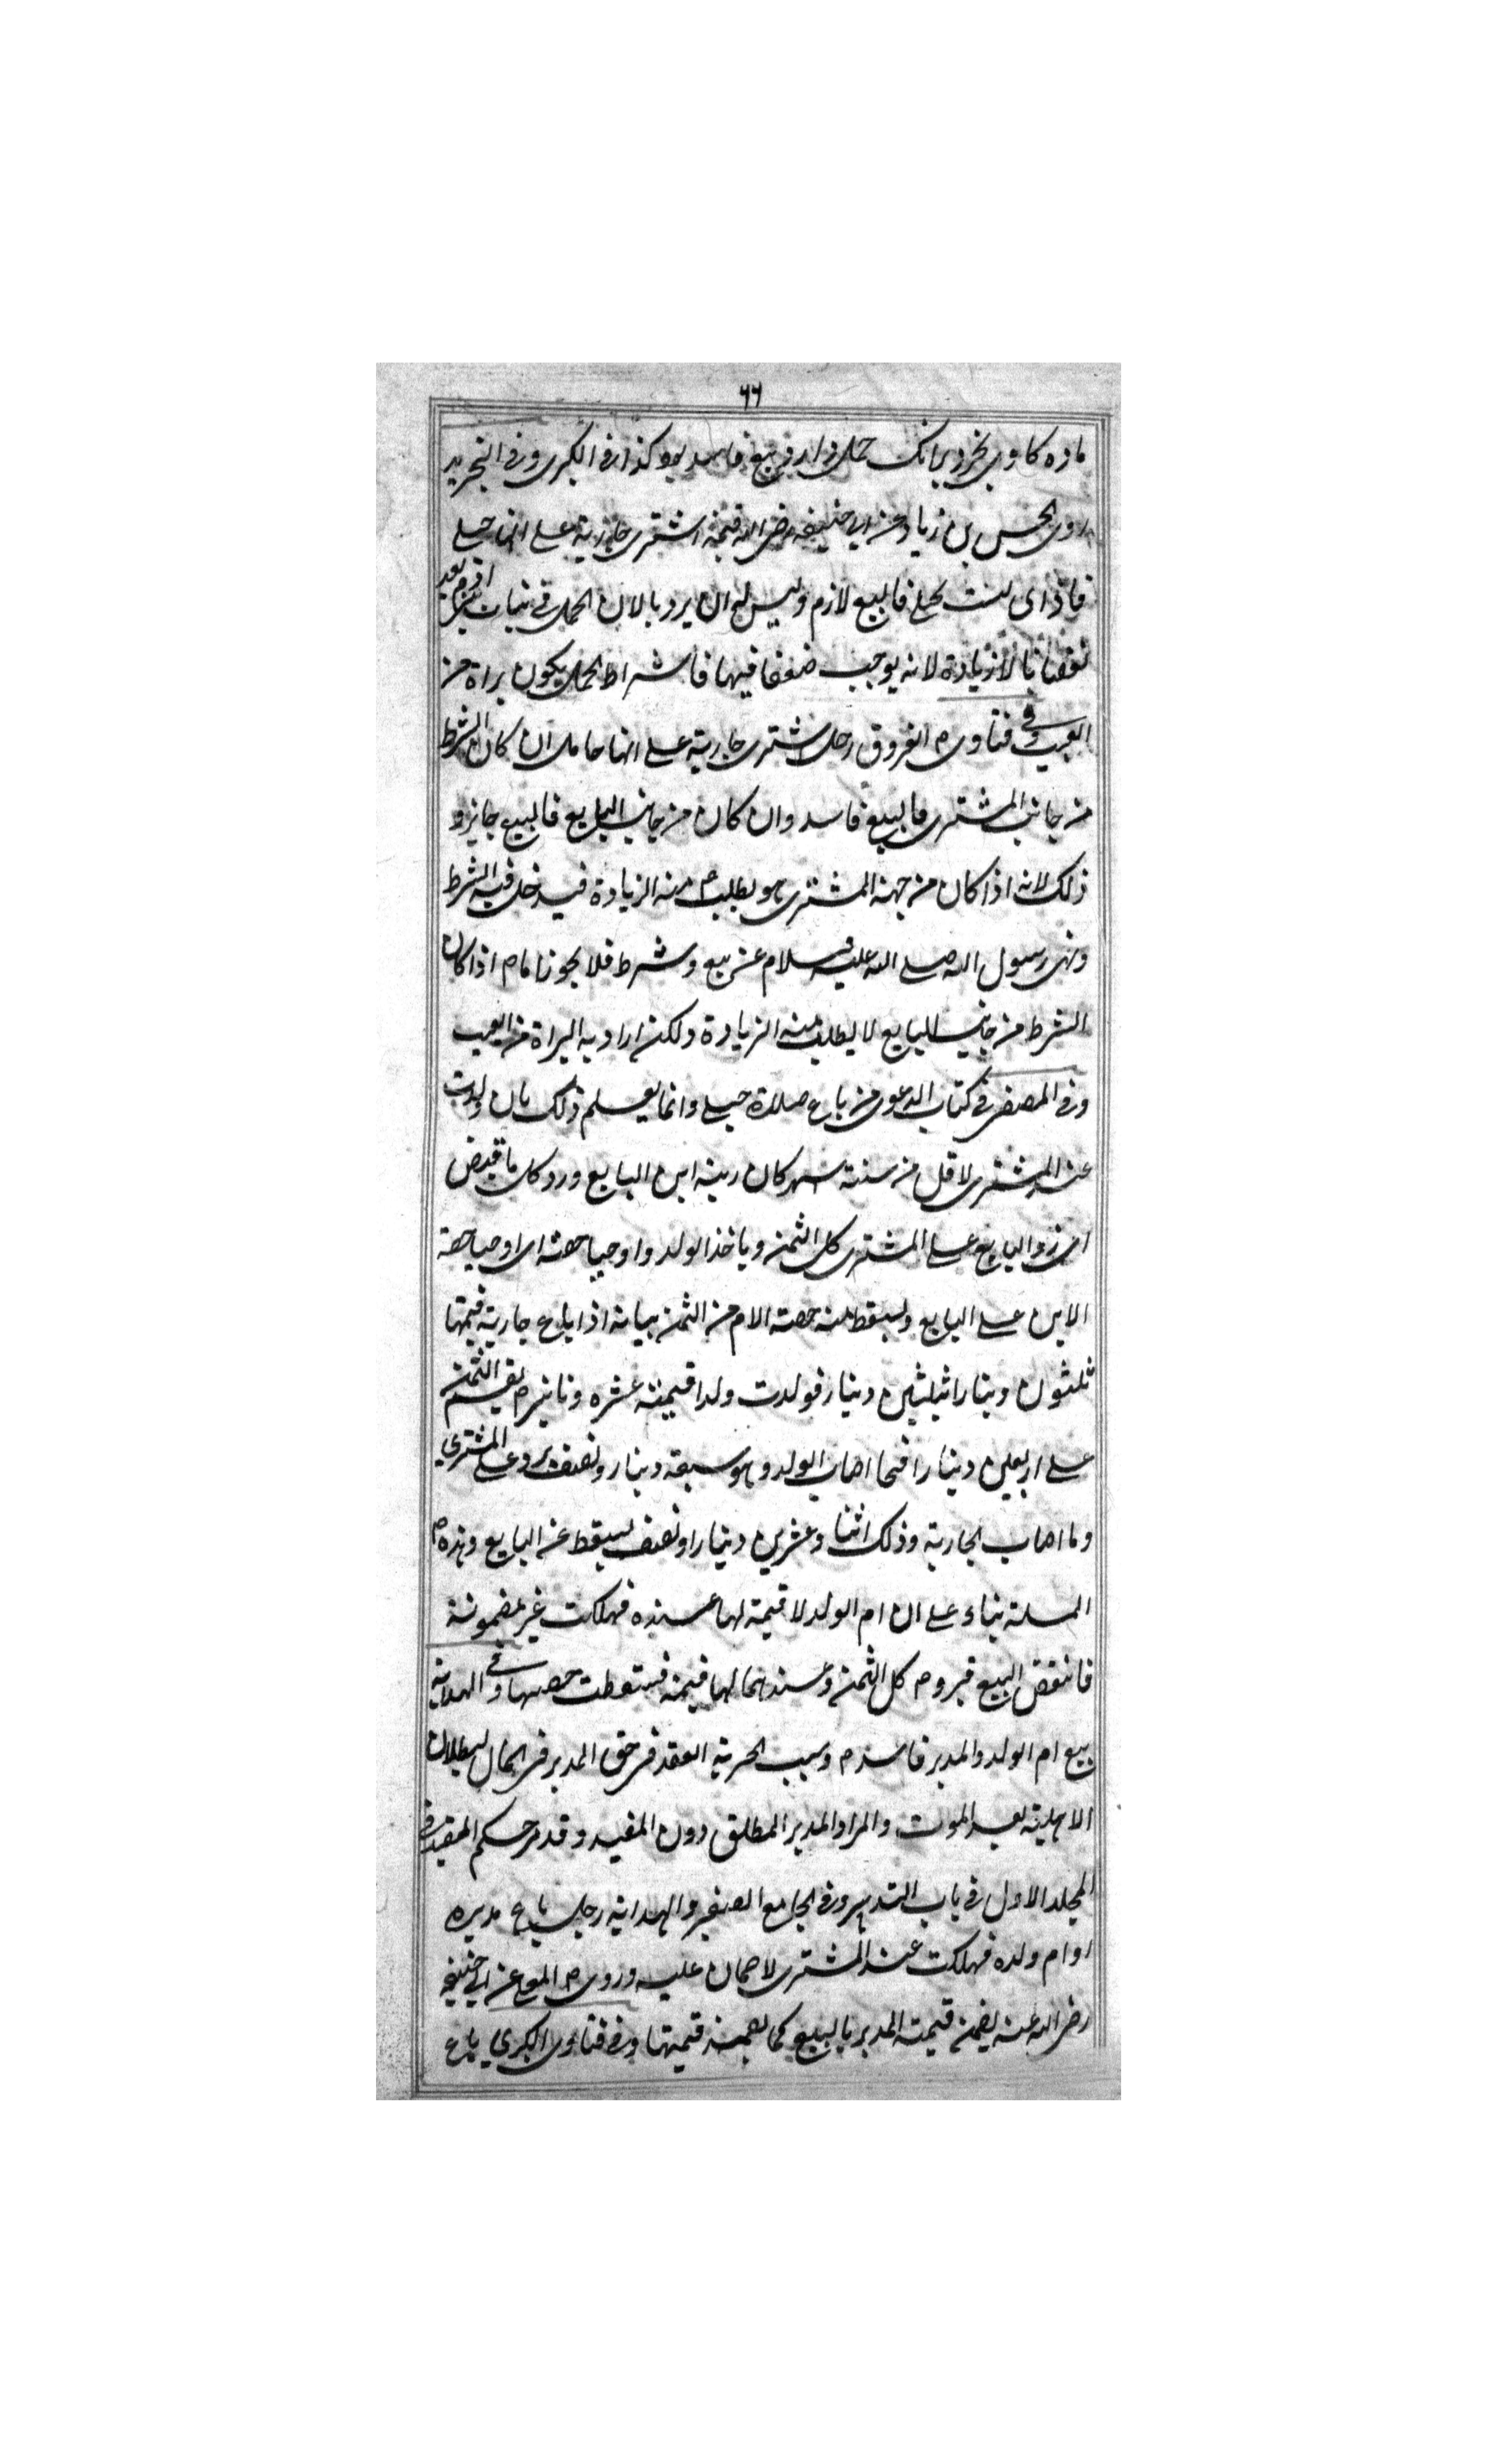 ٦٦
ماده كاوى بخرد بدانك حمل دارد بيع فاسد بود كذا فى الكبرى وفى التجريد
روى الحسن بن زياد عن ابى حنيفه رضى الله فيمن اشترى جارية على انها حبلى
فاذا ليست بحبلى فالبيع لازم وليس له ان يرد بالان الحمل فى بنات ادم يعد
نقصانا لا زيادة لانه يوجب ضعفا فيها فاشتراط الحمل يكون براة من
العيب وفى فتاوى الفروق رجل اشترى جارية على انها حامل ان كان الشرط
من جانب المشترى فالبيع فاسد وان كان من جانب البايع فالبيع جايز و
ذلك لانه اذا كان من جهة المشترى هو يطلب منه الزيادة فيدخل فيه الشرط
ونهى رسول الله صلى الله عليه وسلام عن بيع وشرط فلا يجوز امام اذا كان
الشرط من جانب البايع لا يطلب منه الزيادة ولكن اراد به البراة من العيب
وفى المصفى فى كتاب الدعوى من باع حبلى وانما يعلم ذلك بان ولدت
عند المشترى لاقل من ستة شهر كان ابن البايع ورد كل ما قبض
اى رد البايع على المشترى كل الثمن وياخذ الولد واوجبا حصته اى اوجبا حصة
الابن على البايع ويسقط منه حصة الام من الثمن بيانه اذا باع جارية قيمتها
ثلثون دينارا بثلثين دينار فولدت ولدا قيمته عشره دنانير يقسم الثمن
على اربعين دينارا فما اصاب الولد وهو سبعة دينار ونصف يرد على المشترى
وما اصاب الجارية وذلك اثنا وعشرين دينارا ونصف يسقط عن البايع وهذه
المسلة بناء على ان ام الولد لا قيمة لها عنده فهلكت غير مضمونة
فانتقض البيع فيرد كل الثمن وعندهما لها قيمة فسقطت حصتها وفى الهداية
بيع ام الولد والمدبر فاسد وسبب الحرية العقد فى حق المدبر فى الحال لبطلان
الاهلية بعد الموت والمراد المدبر المطلق دون المقيد وقد مر حكم المقيد فى
المجلد الاول فى باب التدبير وفى الجامع الصغير والهداية رجل باع مدبره
او ام ولده فهلكت عند المشترى لا ضمان عليه وروى عن ابى حنيفه
رضى الله عنه يضمن قيمة المدبر بالبيع كما يضمن قيمتها وفى فتاوى الكبرى باع